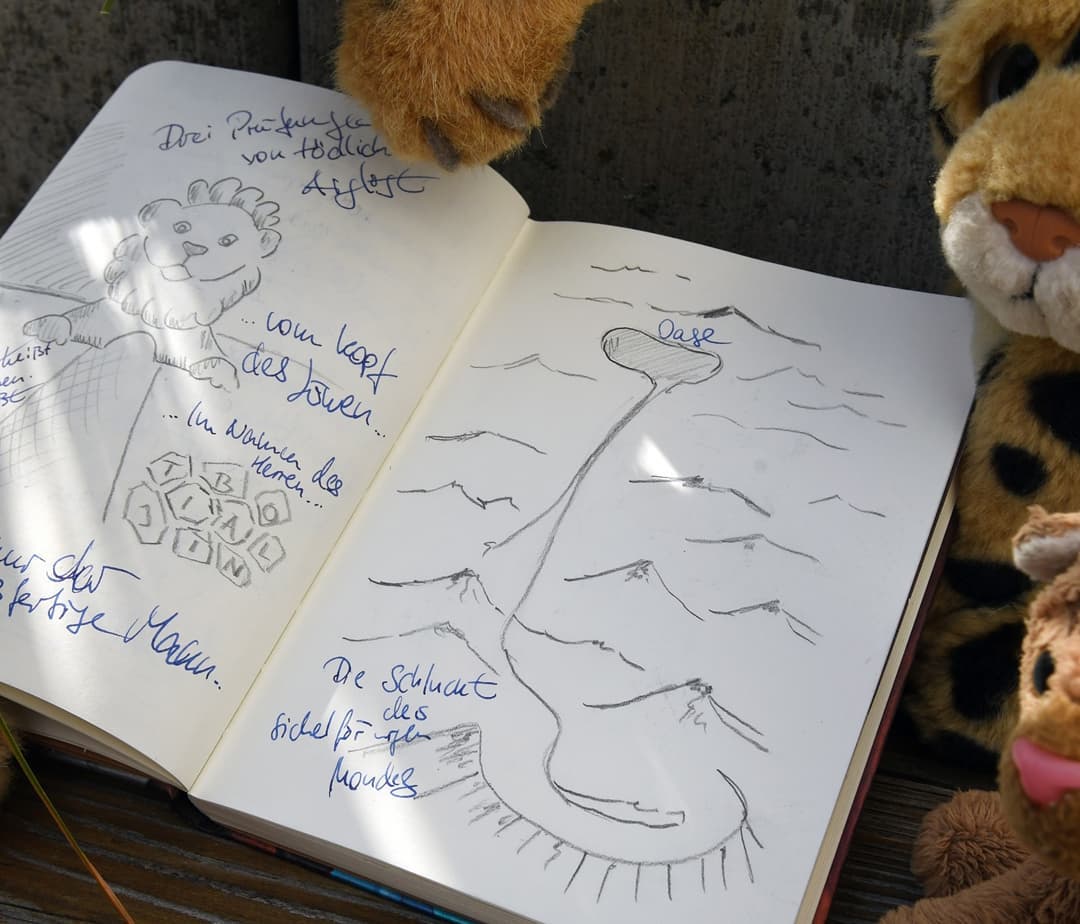 Drei Prüfungen
von tödlich
Arglist
...vom Kopf
des Löwen...
...Im Namen des
Herren...
T B O
J L A L
I N
nur der
fertige Mann...
Oase
Die Schlucht
des
sichelförmigen
Mondes